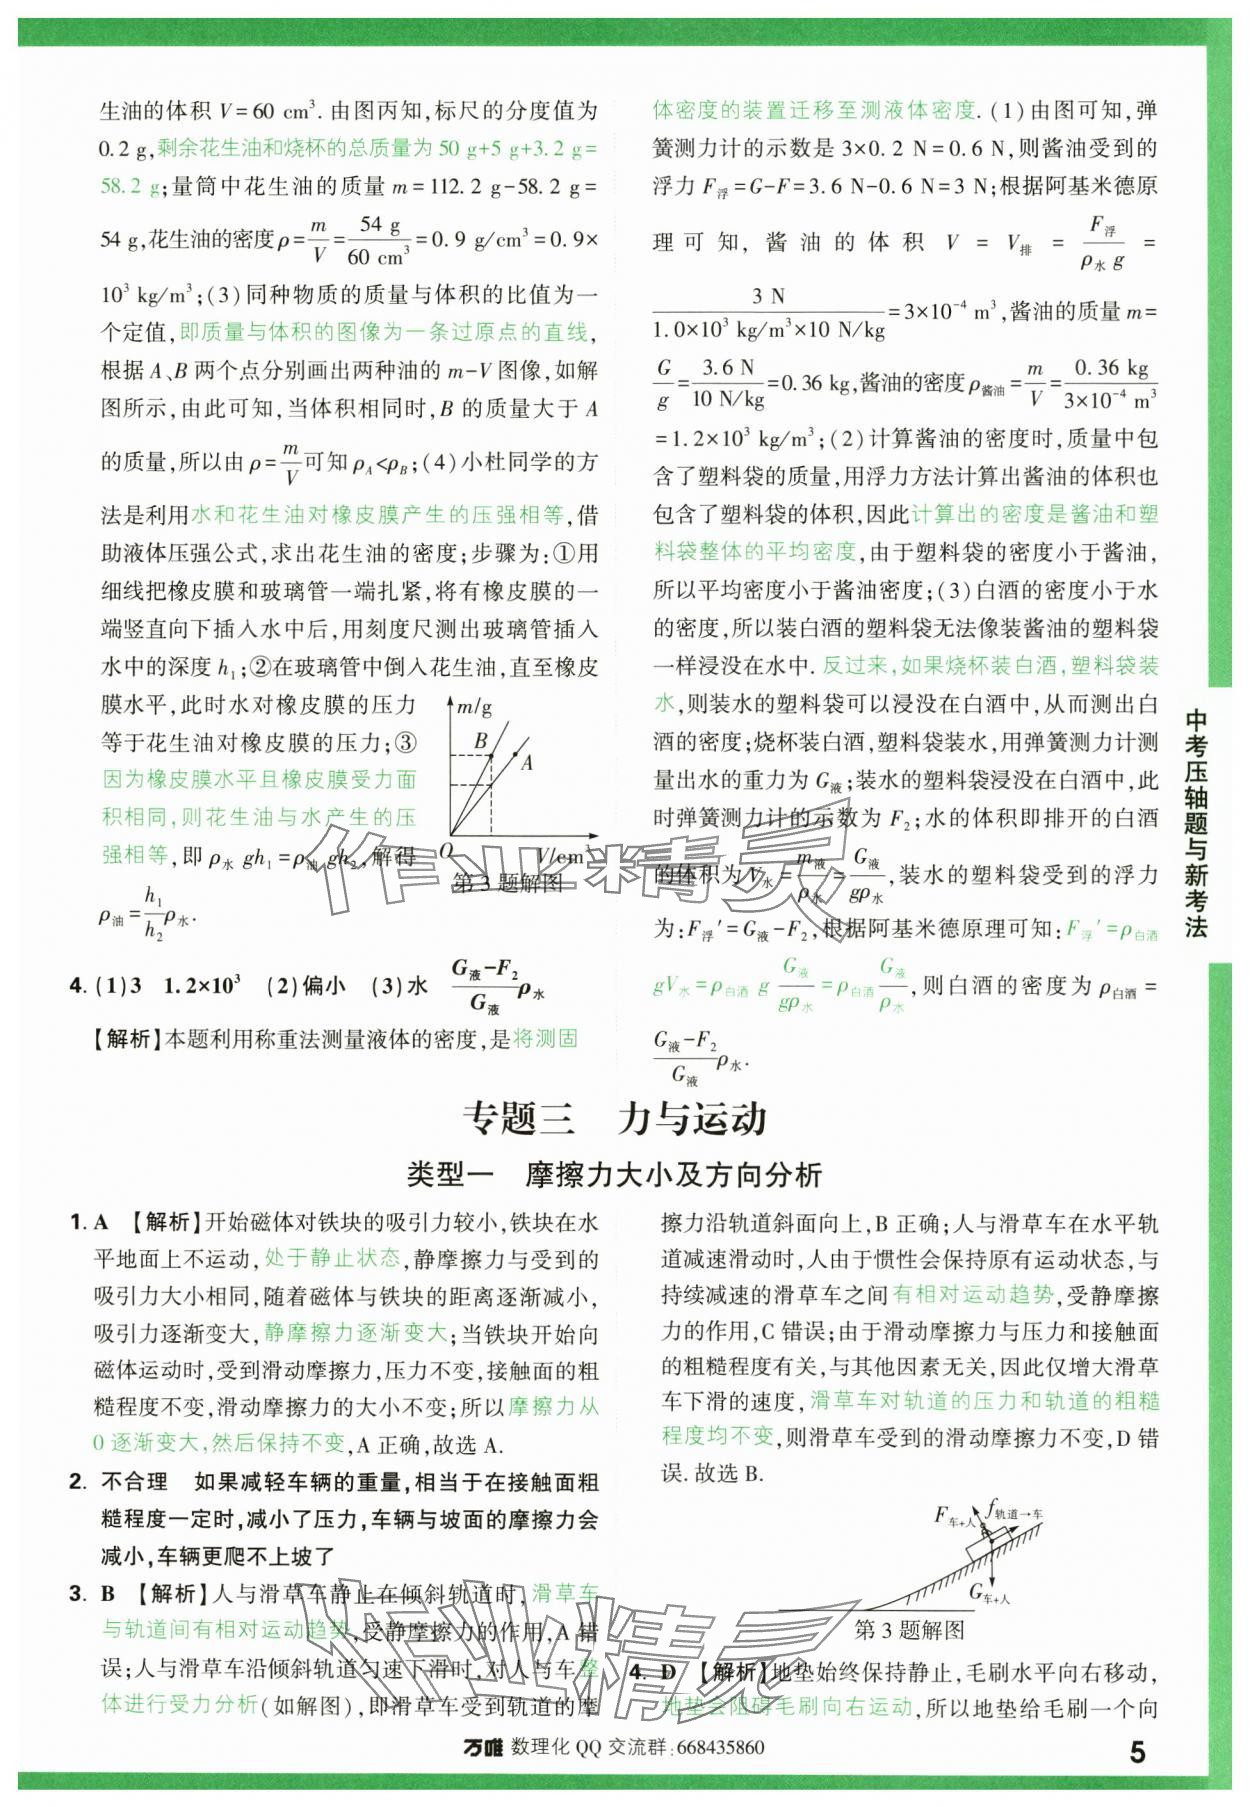 生油的体积 V=60 cm³. 由图丙知,标尺的分度值为
0.2 g,剩余花生油和烧杯的总质量为 50 g+5 g+3.2 g=
58.2 g;量筒中花生油的质量 m=112.2 g-58.2 g=
54 g,花生油的密度 ρ=m/V=54 g/60 cm³=0.9 g/cm³=0.9×
10³ kg/m³;(3)同种物质的质量与体积的比值为一
个定值,即质量与体积的图像为一条过原点的直线,
根据 A、B 两个点分别画出两种油的 m-V 图像,如解
图所示,由此可知,当体积相同时,B 的质量大于 A
的质量,所以由 ρ=m/V可知 ρA<ρB;(4)小杜同学的方
法是利用水和花生油对橡皮膜产生的压强相等,借
助液体压强公式,求出花生油的密度;步骤为:①用
细线把橡皮膜和玻璃管一端扎紧,将有橡皮膜的一
端竖直向下插入水中后,用刻度尺测出玻璃管插入
水中的深度 h₁;②在玻璃管中倒入花生油,直至橡皮
膜水平,此时水对橡皮膜的压力
等于花生油对橡皮膜的压力;③
因为橡皮膜水平且橡皮膜受力面
积相同,则花生油与水产生的压
强相等,即 ρ水 gh₁=ρ油 gh₂,解得
ρ油=h₁/h₂ρ水.
m/g
B
A
O
V/cm³
第 3 题解图
4. (1)3 1.2×10³ (2)偏小 (3)水 (G液-F₂)/G液 ρ水
【解析】本题利用称重法测量液体的密度,是将测固
体密度的装置迁移至测液体密度. (1)由图可知,弹
簧测力计的示数是 3×0.2 N=0.6 N,则酱油受到的
浮力 F浮=G-F=3.6 N-0.6 N=3 N;根据阿基米德原
理可知,酱油的体积 V = V排 = F浮/(ρ水 g) =
3 N/(1.0×10³ kg/m³×10 N/kg)=3×10⁻⁴ m³,酱油的质量 m=
G/g=3.6 N/10 N/kg=0.36 kg,酱油的密度 ρ酱油=m/V=0.36 kg/(3×10⁻⁴ m³)
=1.2×10³ kg/m³;(2)计算酱油的密度时,质量中包
含了塑料袋的质量,用浮力方法计算出酱油的体积也
包含了塑料袋的体积,因此计算出的密度是酱油和塑
料袋整体的平均密度,由于塑料袋的密度小于酱油,
所以平均密度小于酱油密度;(3)白酒的密度小于水
的密度,所以装白酒的塑料袋无法像装酱油的塑料袋
一样浸没在水中. 反过来,如果烧杯装白酒,塑料袋装
水,则装水的塑料袋可以浸没在白酒中,从而测出白
酒的密度;烧杯装白酒,塑料袋装水,用弹簧测力计测
量出水的重力为 G液;装水的塑料袋浸没在白酒中,此
时弹簧测力计的示数为 F₂;水的体积即排开的白酒
的体积为 V水=m液/ρ水=G液/gρ水,装水的塑料袋受到的浮力
为:F浮′=G液-F₂,根据阿基米德原理可知:F浮′=ρ白酒
gV水=ρ白酒 g G液/gρ水=ρ白酒 G液/ρ水,则白酒的密度为 ρ白酒=
(G液-F₂)/G液 ρ水.
中考压轴题与新考法
专题三 力与运动
类型一 摩擦力大小及方向分析
1. A 【解析】开始磁体对铁块的吸引力较小,铁块在水
平地面上不运动,处于静止状态,静摩擦力与受到的
吸引力大小相同,随着磁体与铁块的距离逐渐减小,
吸引力逐渐变大,静摩擦力逐渐变大;当铁块开始向
磁体运动时,受到滑动摩擦力,压力不变,接触面的粗
糙程度不变,滑动摩擦力的大小不变;所以摩擦力从
0 逐渐变大,然后保持不变,A 正确,故选 A.
2. 不合理 如果减轻车辆的重量,相当于在接触面粗
糙程度一定时,减小了压力,车辆与坡面的摩擦力会
减小,车辆更爬不上坡了
3. B 【解析】人与滑草车静止在倾斜轨道时,滑草车
与轨道间有相对运动趋势,受静摩擦力的作用,A 错
误;人与滑草车沿倾斜轨道匀速下滑时,对人与车整
体进行受力分析(如解图),即滑草车受到轨道的摩
擦力沿轨道斜面向上,B 正确;人与滑草车在水平轨
道减速滑动时,人由于惯性会保持原有运动状态,与
持续减速的滑草车之间有相对运动趋势,受静摩擦
力的作用,C 错误;由于滑动摩擦力与压力和接触面
的粗糙程度有关,与其他因素无关,因此仅增大滑草
车下滑的速度,滑草车对轨道的压力和轨道的粗糙
程度均不变,则滑草车受到的滑动摩擦力不变,D 错
误. 故选 B.
F车+人
f轨道→车
G车+人
第 3 题解图
4. D 【解析】地垫始终保持静止,毛刷水平向右移动,
地垫会阻碍毛刷向右运动,所以地垫给毛刷一个向
万唯 数理化 QQ 交流群:668435860
5
作业精灵
作业精灵